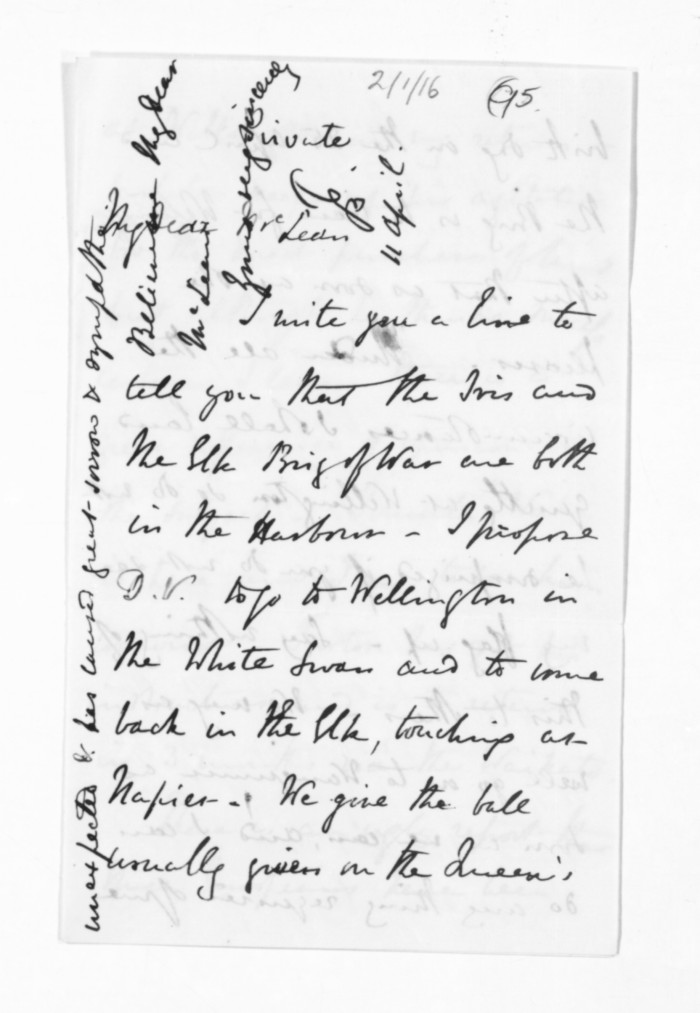 2/1/16
95
Private
My dear McLean
I write you a line to
tell you that the Iris and
the Elk Brig of War are both
in the Harbour - I propose
D.V. to go to Wellington in
the White Swan and to come
back in the Elk, touching at
Napier -. We give the ball
usually given on the Queen's
unexpected & has caused great sorrow & sympathy
Believe me My dear
McLean
Yours very sincerely
11 April.